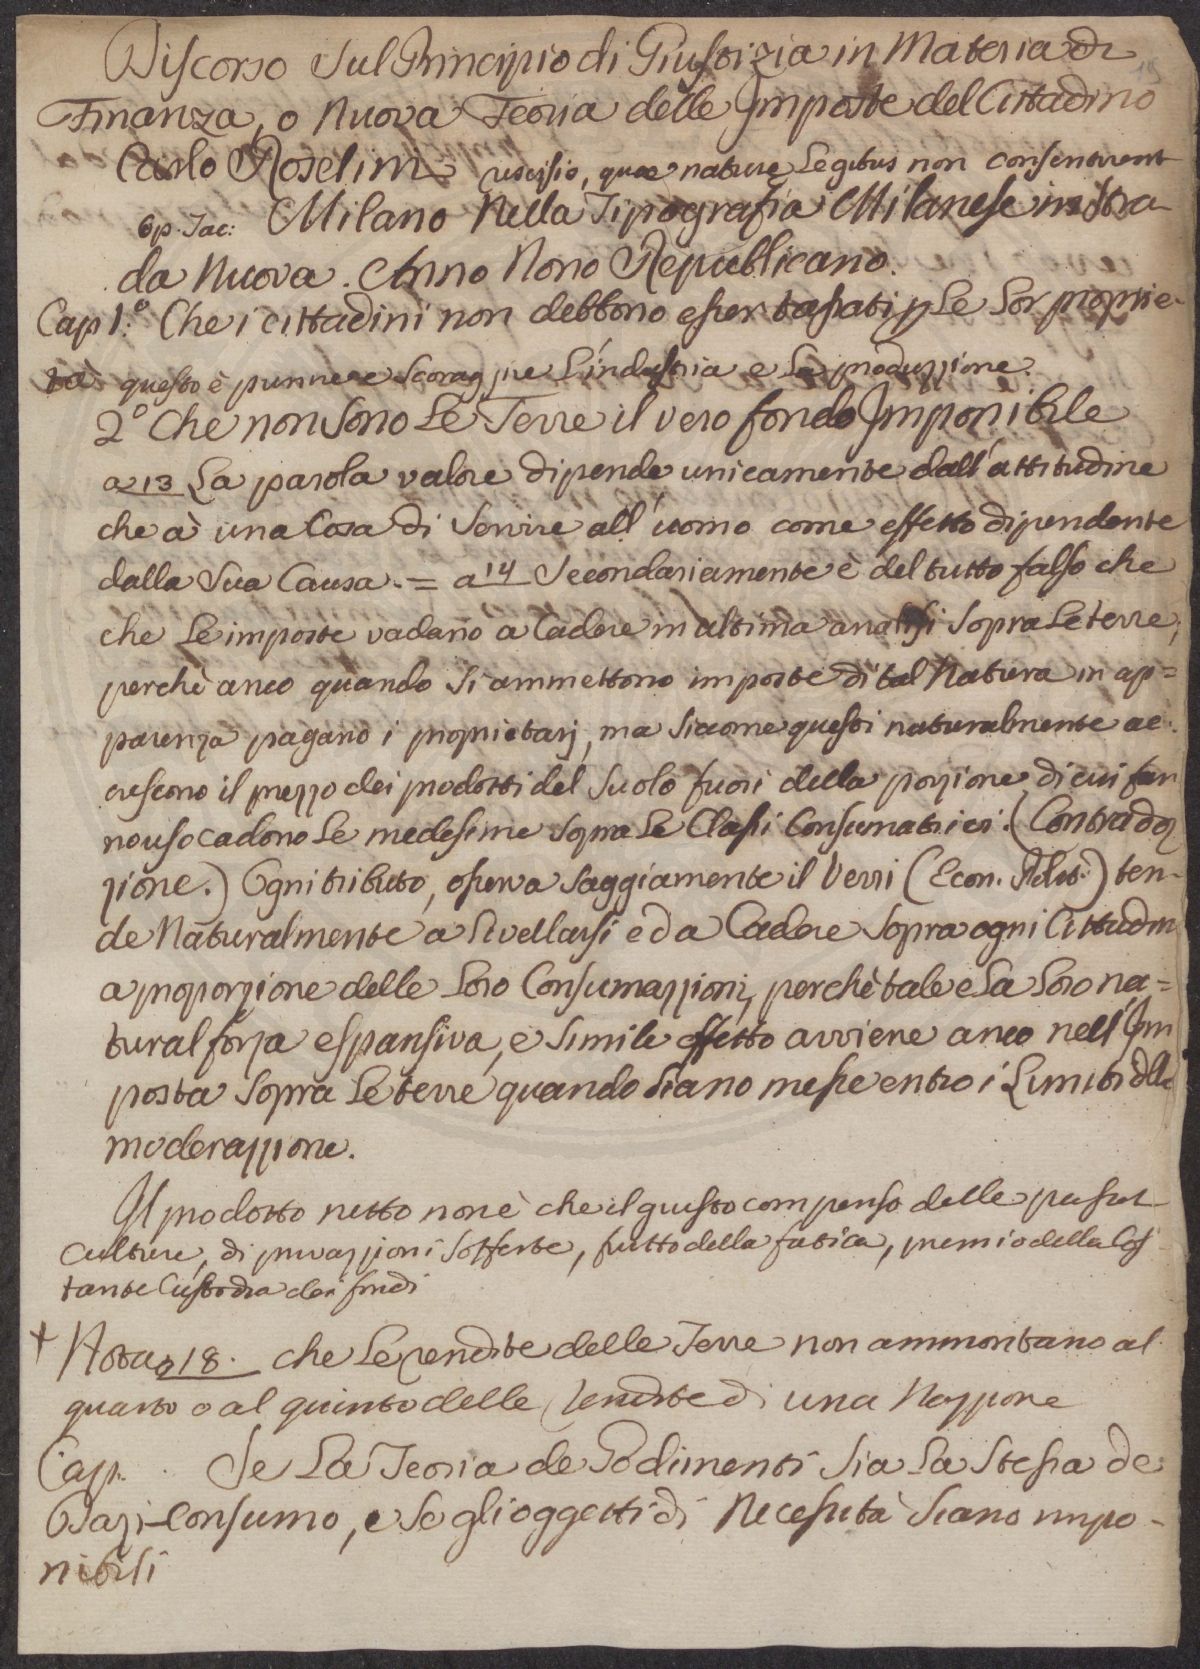 19
Discorso Sul Principio di Giustizia in Materia di
Finanza, o Nuova Teoria delle Imposte del Cittadino
Carlo Roselini = quae naturę Legibus non consentiunt
Milano Nella Tipografia Milanese in Stra-
da Nuova. Anno Nono Republicano.
Cap 1.º Che i cittadini non debbono esser tassati p Le Lor proprie-
tà questo è punire e scoragire L'industria e La produzzione.
2º Che non Sono Le Terre il vero fondo Imponibile
a 13 La parola valore dipende unicamente dall'attitudine
che à una Cosa di Servire all'uomo come effetto dipendente
dalla Sua Causa. = a 14 Secondariamente è del tutto falso che
che Le imposte vadano a Cadere in ultima analisi Sopra Le terre,
perchè anco quando Si ammettono imposte di tal Natura in ap=
parenza pagano i proprietarj, ma Siccome questi naturalmente ac
crescono il prezzo dei prodotti del Suolo fuori della porzione di cui fan
no uso cadono Le medesime Sopra Le Classi Consumatrici. (Contradiz
zione.) Ogni tributo, osserva Saggiamente il Verri (Econ. Polit.) ten-
de Naturalmente a Livellarsi ed a Cadere Sopra ogni Cittadin
a proporzione delle Loro Consumazzioni, perchè tale e La Loro na=
tural forza espansiva, e Simile effetto avviene anco nell'Im
posta Sopra Le terre quando Siano messe entro i Limiti della
moderazzione.
Il prodotto netto non è che il giusto compenso delle passat
culture, di privazzioni Sofferte, frutto della fatica, premio della Cos
tante Custodia dei fondi
+ Nota a 18. che Le rendite delle Terre non ammontano al
quarto o al quinto delle rendite di una Nazzione
Cap. Se La Teoria de Godimenti Sia La Stessa de
Dazi-Consumo, e Se gli oggetti di Necessità Siano impo-
nibili